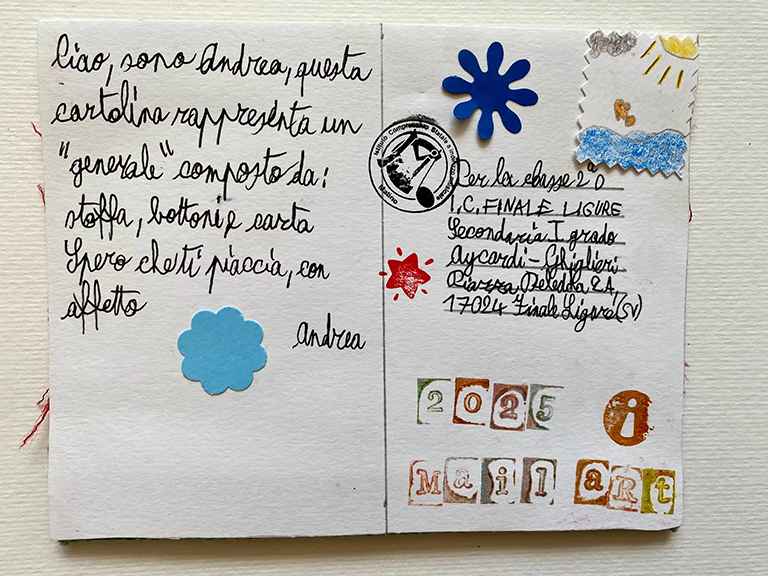 Ciao, sono Andrea, questa
cartolina rappresenta un
"generale" composto da:
stoffa, bottoni e carta
Spero che ti piaccia, con
affetto
Andrea
Istituto Comprensivo Statale a indirizzo musicale
Per la classe 2°D
I.C. FINALE LIGURE
Secondaria I grado
Aycardi-Ghiglieri
Piazza Deledda 2A,
17024 Finale Ligure (SV)
2025 i
Mail aRt